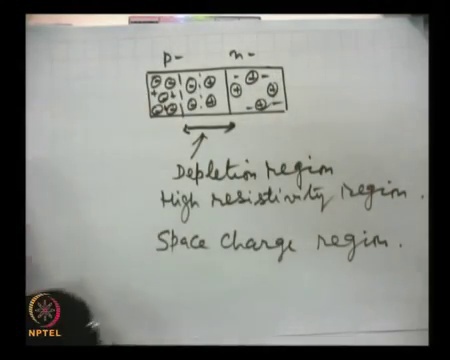 p- n-
Depletion region
High resistivity region.
Space Charge region.
NPTEL